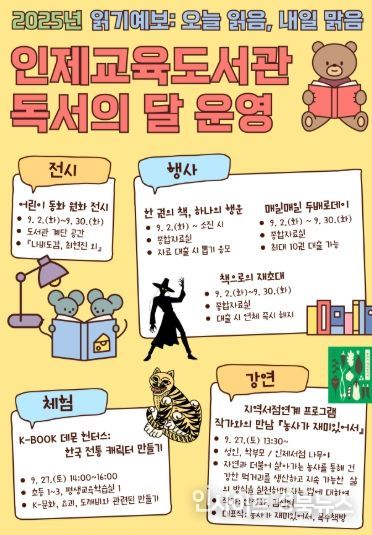 2025년 읽기예보: 오늘 읽음, 내일 맑음
인제교육도서관
독서의 달 운영
전시
어린이 동화 원화 전시
• 9. 2.(화)~9. 30.(화)
• 도서관 계단 공간
• 『나비도감, 최현진 외』
행사
한 권의 책, 하나의 행운
• 9. 2.(화) ~ 소진 시
• 종합자료실
• 자료 대출 시 뽑기 응모
매일매일 두배로데이
• 9. 2.(화) ~ 9. 30.(화)
• 종합자료실
• 최대 10권 대출 가능
책으로의 재초대
• 9. 2.(화)~9. 30.(화)
• 종합자료실
• 대출 시 연체 즉시 해지
체험
K-BOOK 데몬 헌터스:
한국 전통 캐릭터 만들기
• 9. 27.(토) 14:00~16:00
• 초등 1~3, 평생교육학습실 1
• K-문화, 효과, 도깨비와 관련된 만들기
강연
지역서점연계 프로그램
작가와의 만남 『농사가 재미있어서』
• 9. 27.(토) 13:30~
• 성인, 학부모 / 인제서점 나무이
• 자연과 더불어 살아가는 농사를 통해 건
강한 먹거리를 생산하고 지속 가능한 삶
의 방식을 실천하며 사는 법에 대하여
• 대표작: 농사가 재미있어서, 옥수박방